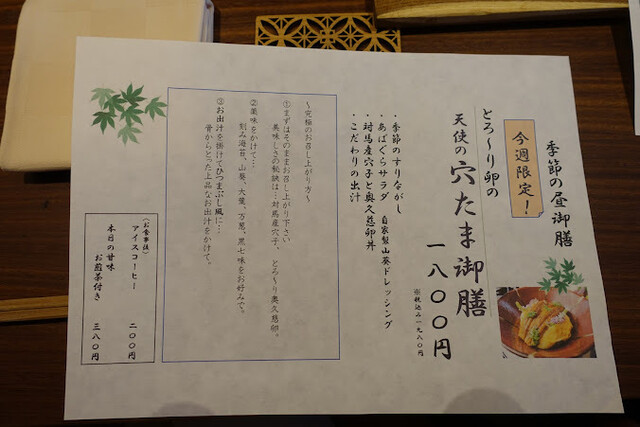 季節の昼御膳
今週限定！
とろ〜り卵の
天使の穴たま御膳
一八〇〇円
※税込み一九八〇円
・季節のすりながし
・あばぐらサラダ　自家製山葵ドレッシング
・対馬産穴子と奥久慈卵丼
・こだわりの出汁
〜究極のお召し上がり方〜
①まずはそのままお召し上がり下さい
美味しさの秘訣は…対馬産穴子、とろ〜り奥久慈卵。
②薬味をかけて…
刻み海苔、山葵、大葉、万葱、黒七味をお好みで。
③お出汁を掛けてひつまぶし風に…
骨からとった上品なお出汁をかけて。
（お食事後）
アイスコーヒー　二〇〇円
本日の甘味
お煎茶付き　三八〇円